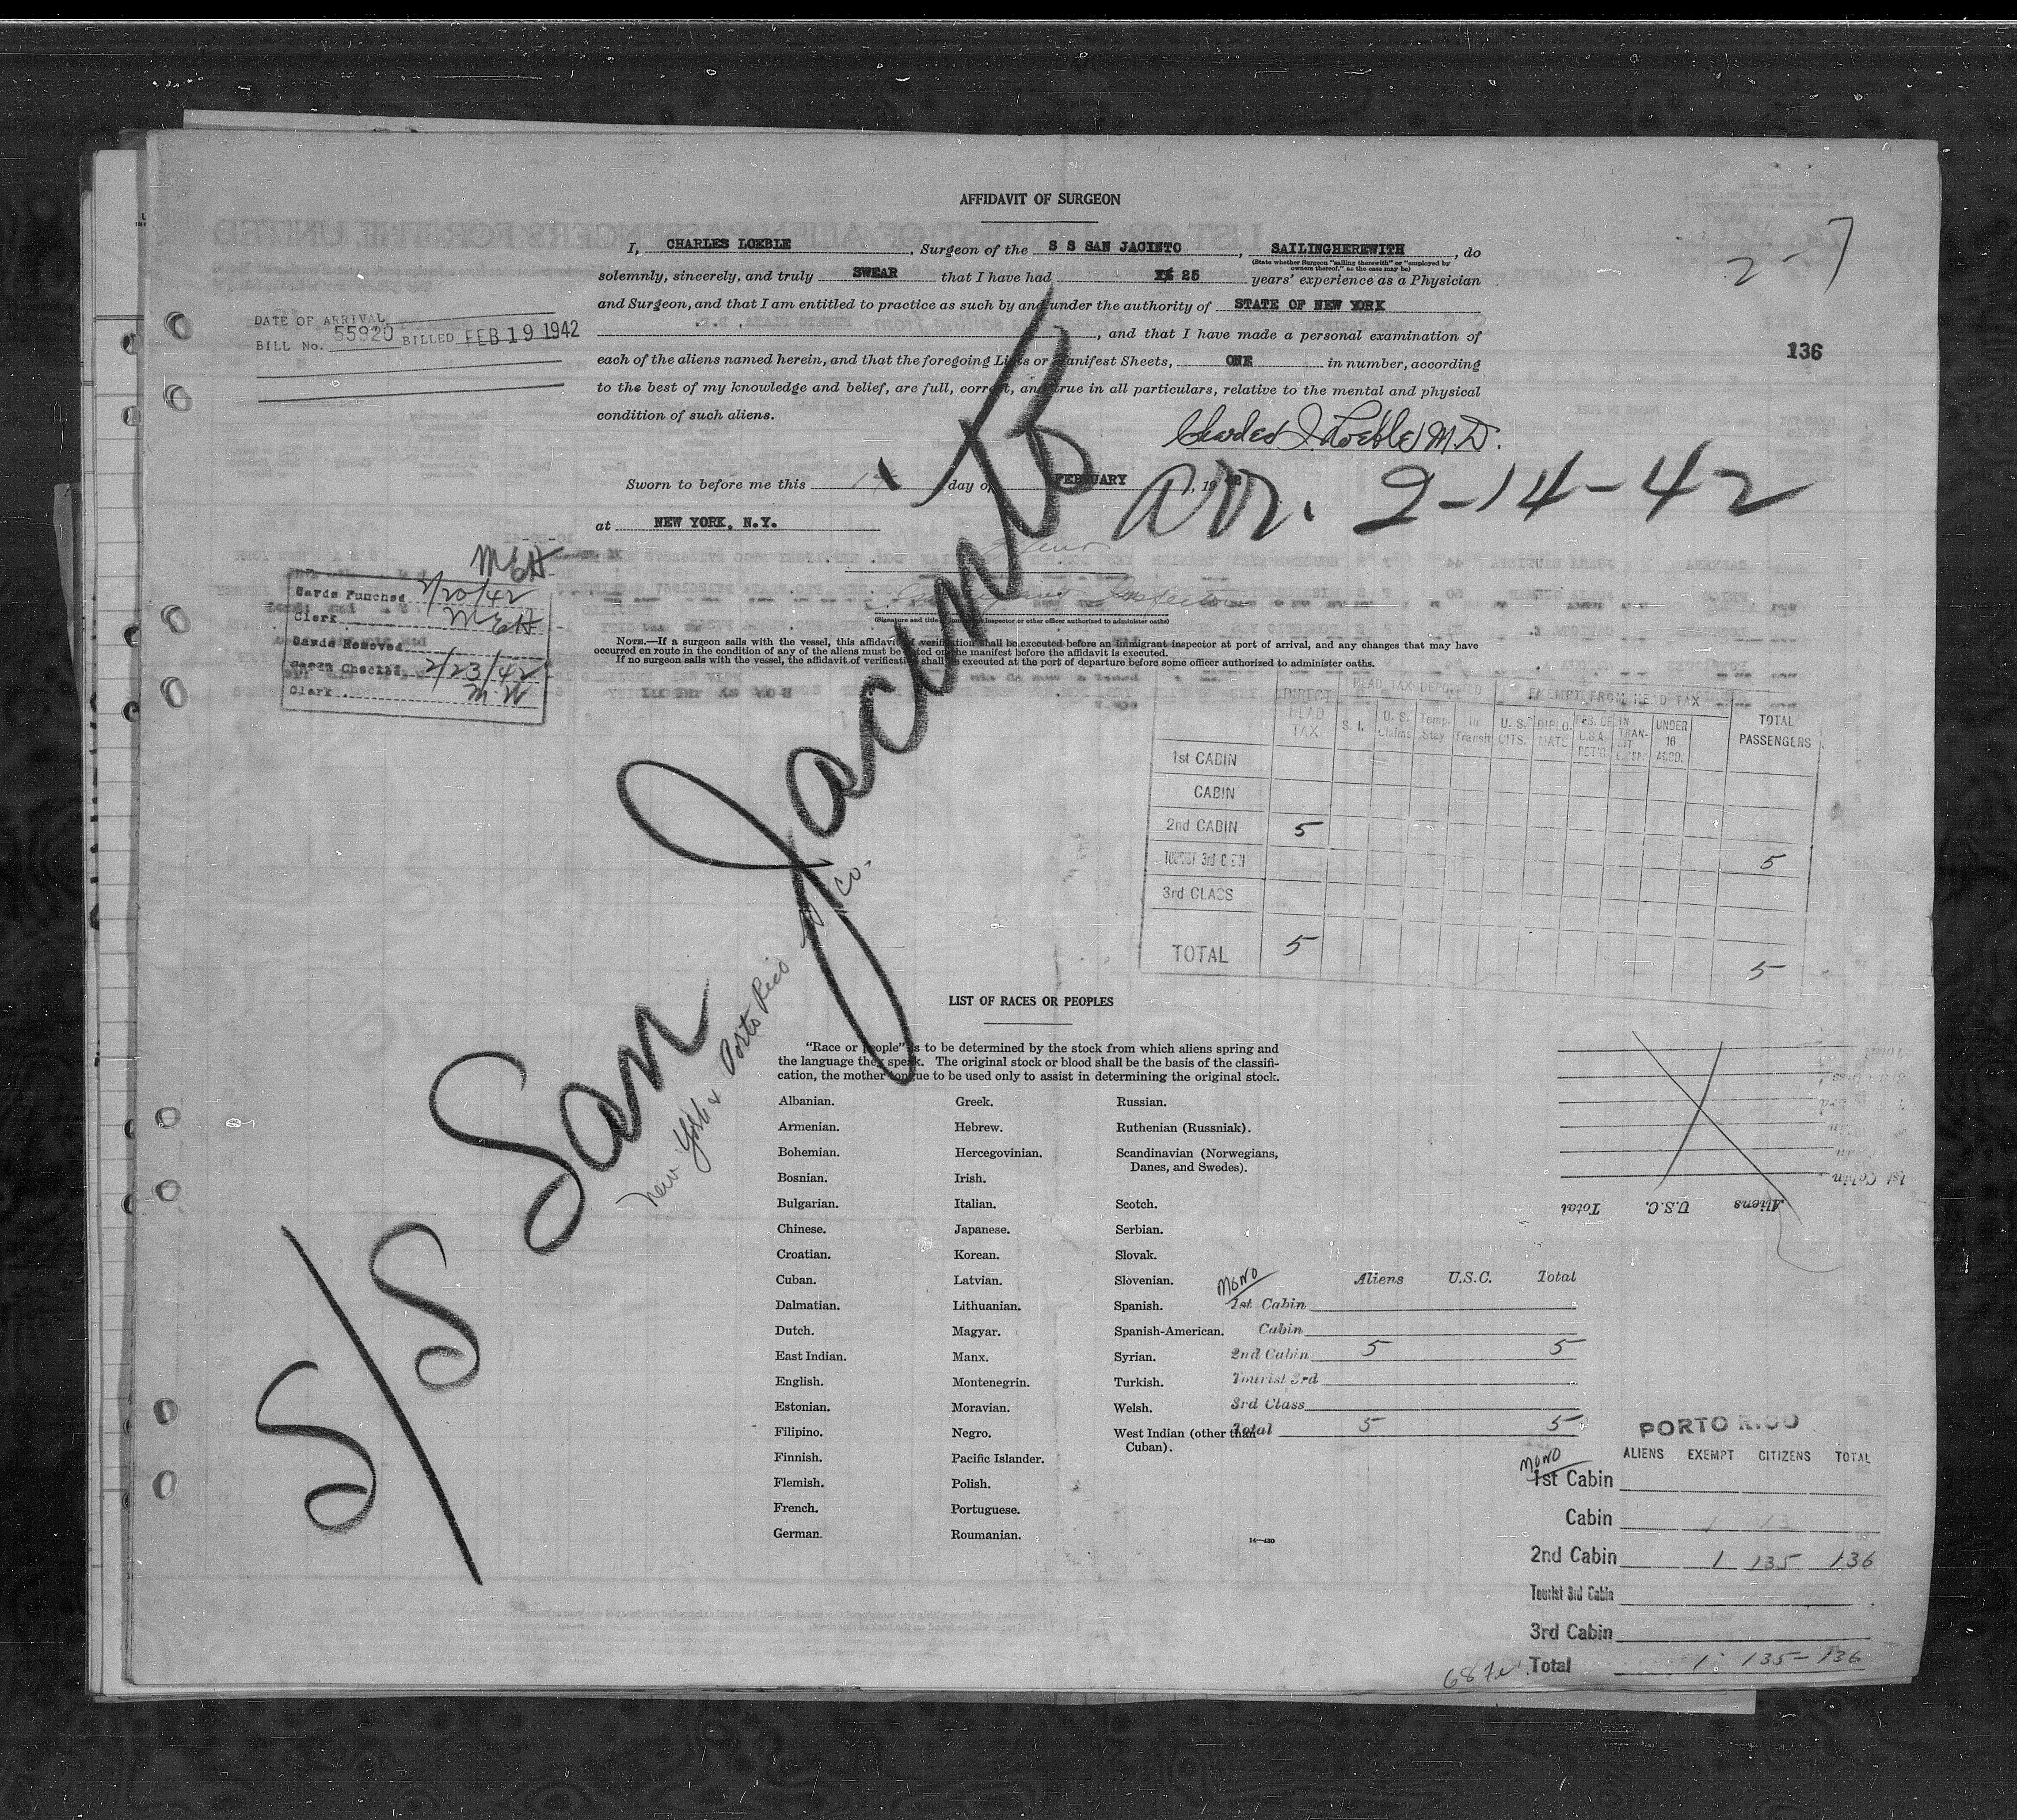 AFFIDAVIT OF SURGEON
I, CHARLES LOEBLE, Surgeon of the S S SAN JACINTO, SAILINGHEREWITH, do
(State whether Surgeon "sailing therewith" or "employed by
owners thereof," as the case may be)
solemnly, sincerely, and truly SWEAR that I have had 25 years' experience as a Physician
and Surgeon, and that I am entitled to practice as such by and under the authority of STATE OF NEW YORK
, and that I have made a personal examination of
each of the aliens named herein, and that the foregoing Lists or Manifest Sheets, ONE in number, according
to the best of my knowledge and belief, are full, correct, and true in all particulars, relative to the mental and physical
condition of such aliens.
Charles J. Loeble M.D.
Sworn to before me this 14 day of FEBRUARY, 1942
at NEW YORK, N.Y.
Arr. 2-14-42
2-7
136
DATE OF ARRIVAL
BILL No. 55920 BILLED FEB 19 1942
MEH
Cards Punched 2/20/42
Clerk MEH
Cards Removed
Cards Checked 2/23/42
Clerk M.W
Immigrant Inspector
(Signature and title of immigrant inspector or other officer authorized to administer oaths)
NOTE.—If a surgeon sails with the vessel, this affidavit of verification shall be executed before an immigrant inspector at port of arrival, and any changes that may have
occurred en route in the condition of any of the aliens must be noted on the manifest before the affidavit is executed.
If no surgeon sails with the vessel, the affidavit of verification shall be executed at the port of departure before some officer authorized to administer oaths.
S/S San Jacinto
New York & Porto Rico SS Co.
DIRECT HEAD TAX HEAD TAX DEPOSITED EXEMPT FROM HEAD TAX TOTAL PASSENGERS
S. I. U. S. Claims Temp. Stay In Transit U. S. CITS. DIPLOMATS RES. OF U.S.A. RET'G IN TRANSIT UNDER 16 ACCD.
1st CABIN
CABIN
2nd CABIN 5
TOURIST 3rd CABIN 5
3rd CLASS
TOTAL 5 5
LIST OF RACES OR PEOPLES
"Race or people" is to be determined by the stock from which aliens spring and
the language they speak. The original stock or blood shall be the basis of the classifi-
cation, the mother tongue to be used only to assist in determining the original stock.
Albanian. Greek. Russian.
Armenian. Hebrew. Ruthenian (Russniak).
Bohemian. Hercegovinian. Scandinavian (Norwegians,
Danes, and Swedes).
Bosnian. Irish.
Bulgarian. Italian. Scotch.
Chinese. Japanese. Serbian.
Croatian. Korean. Slovak.
Cuban. Latvian. Slovenian.
Dalmatian. Lithuanian. Spanish.
Dutch. Magyar. Spanish-American.
East Indian. Manx. Syrian.
English. Montenegrin. Turkish.
Estonian. Moravian. Welsh.
Filipino. Negro. West Indian (other than
Cuban).
Finnish. Pacific Islander.
Flemish. Polish.
French. Portuguese.
German. Roumanian.
14—430
Aliens U.S.C. Total
1st Cabin
Mono
Aliens U.S.C. Total
1st Cabin
Cabin
2nd Cabin 5 5
Tourist 3rd
3rd Class
Total 5 5
PORTO RICO
ALIENS EXEMPT CITIZENS TOTAL
Mono
1st Cabin
Cabin 1 13
2nd Cabin 1 135 136
Tourist 3rd Cabin
3rd Cabin
Total 1 135 - 136